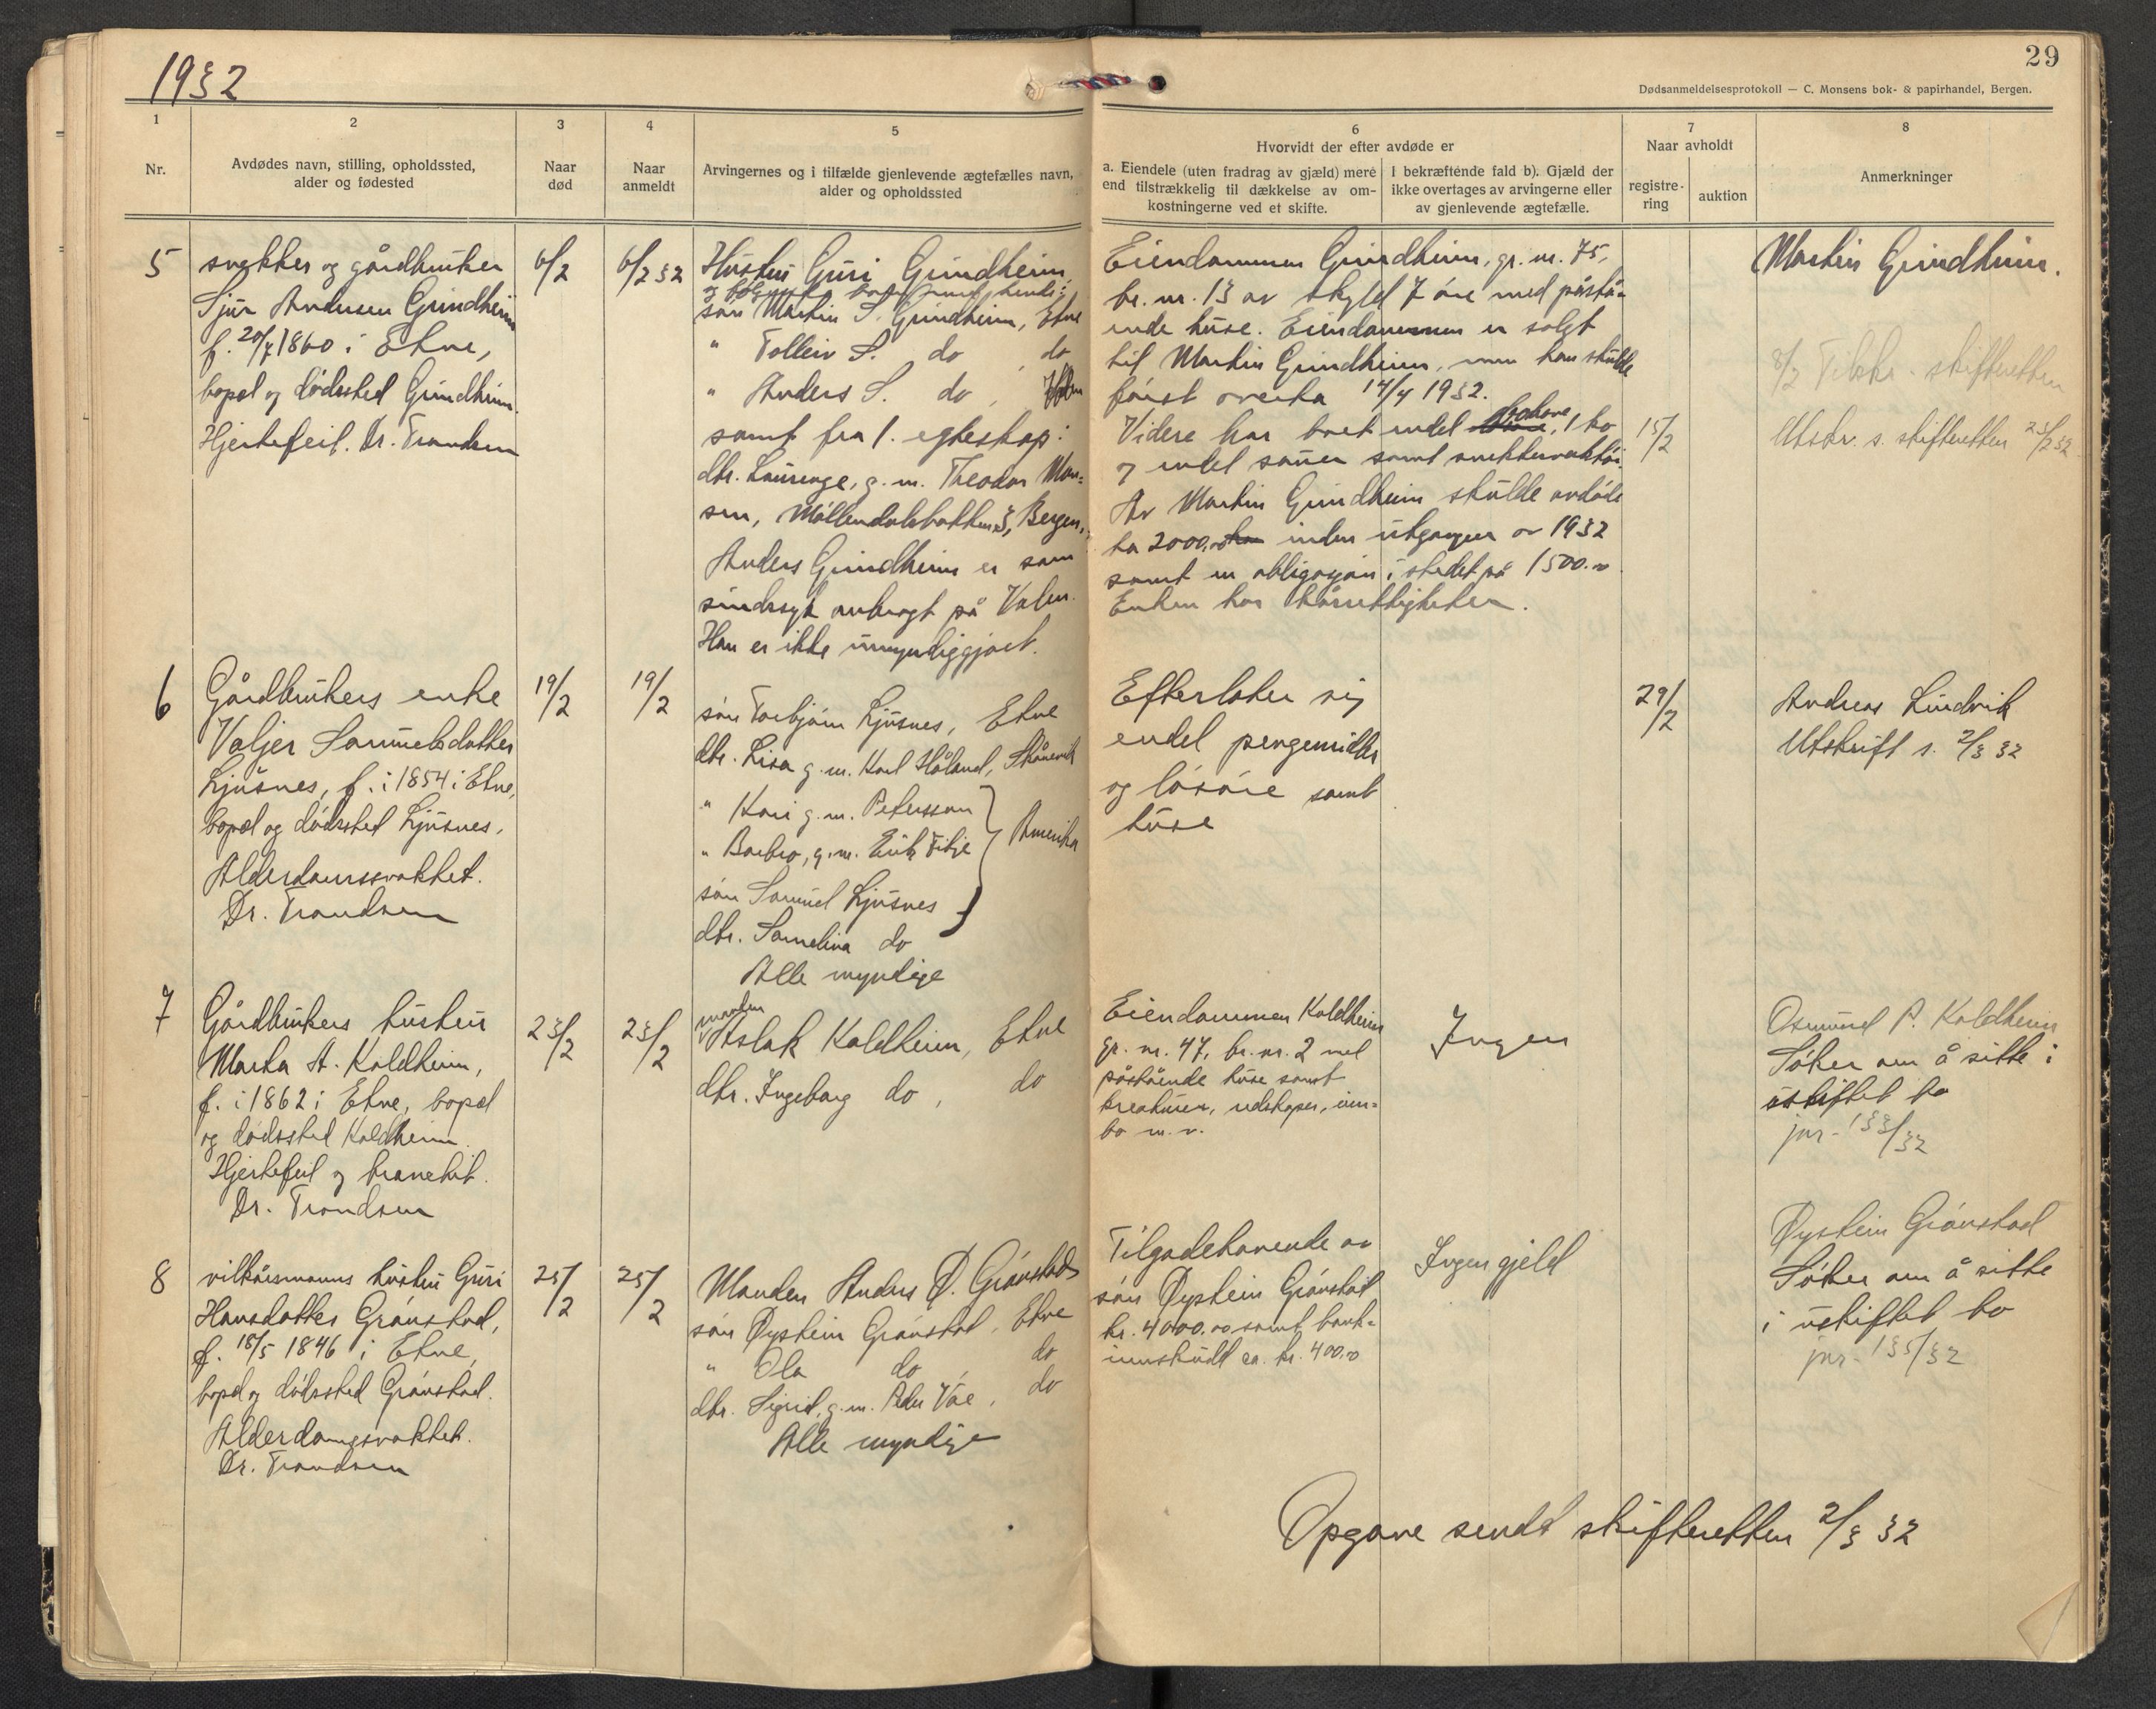 1932
29
Dødsanmeldelsesprotokoll — C. Monsens bok- & papirhandel, Bergen.
1
Nr.
2
Avdødes navn, stilling, opholdssted,
alder og fødested
3
Naar
død
4
Naar
anmeldt
5
Arvingernes og i tilfælde gjenlevende ægtefælles navn,
alder og opholdssted
6
Hvorvidt der efter avdøde er
a. Eiendele (uten fradrag av gjæld) mere
end tilstrækkelig til dækkelse av om-
kostningerne ved et skifte.
I bekræftende fald b). Gjæld der
ikke overtages av arvingerne eller
av gjenlevende ægtefælle.
7
Naar avholdt
registre-
ring
auktion
8
Anmerkninger
5
snekker og gårdbruker
Sjur Andersen Grindheim
f. 20/7 1860 i Etne,
bopæl og dødssted Grindheim.
Hjertefeil. Dr. Trondsen
6/2
6/2 32
Hustru Guri Grindheim,
og barn med hende:
søn Martin S. Grindheim, Etne
" Tolleiv S. do, do
" Anders S. do,
samt fra 1. egteskap:
dtr. Laurenze, g.m. Theodor Mon=
sen, Møllendalsbakken 3, Bergen.
Anders Grindheim er som
sindssyk anbragt på Valen.
Han er ikke umyndiggjort.
Eiendommen Grindheim, gr. nr. 75,
br. nr. 13 av skyld 7 øre med påstå=
ende huse. Eiendommen er solgt
til Martin Grindheim, men han skulde
først overta 14/4 1932.
Videre har boet endel indbo, 1 ko
og endel sauer samt snekkerverktøi.
Av Martin Grindheim skulde avdøde
ha 2000.00 inden utgangen av 1932
samt en obligasjon i stedet på 1500.00
Enken har kårrettigheter.
15/2
Martin Grindheim.
8/2 Tilskr. skifteretten
Utskr. s. skifteretten 23/2 32
6
Gårdbrukers enke
Valjer Samuelsdatter
Ljusnes, f. i 1854 i Etne,
bopæl og dødssted Ljusnes.
Alderdomssvakhet.
Dr. Trondsen
19/2
19/2
søn Torbjørn Ljusnes, Etne
dtr. Lisa g.m. Karl Håland, Skånevik
" Kari g.m. Peterssen
" Barbro, g.m. Erik Fitje
Amerika
søn Samuel Ljusnes
dtr. Samelina do
Alle myndige
Efterlater sig
endel pengemidler
og løsøre samt
huse
29/2
Andreas Lindvik
Utskrift s. 2/3 32
7
Gårdbrukers hustru
Marta A. Koldheim,
f. i 1862 i Etne, bopæl
og dødssted Koldheim.
Hjertefeil og bronchit.
Dr. Trondsen
23/2
23/2
manden
Aslak Koldheim, Etne
dtr. Ingeborg do, do
Eiendommen Koldheim
gr. nr. 47, br. nr. 2 med
påstående huse samt
kreaturer, redskaper, inn=
bo m.v.
Ingen
Osmund P. Koldheim
Søker om å sitte i
uskiftet bo
jnr. 133/32
8
vilkårsmanns hustru Guri
Hansdatter Grønstad,
f. 18/5 1846 i Etne,
bopæl og dødssted Grønstad.
Alderdomssvakhet.
Dr. Trondsen
25/2
25/2
Manden Anders Ø. Grønstad
søn Øystein Grønstad, Etne
" Ola do, do
dtr. Sigrid, g.m. Peder Våe, do
Alle myndige
Tilgodehavende av
søn Øystein Grønstad
kr. 4000.00 samt bank=
innskudd ca. kr. 400.00
Ingen gjeld
Øystein Grønstad
Søker om å sitte
i uskiftet bo
jnr. 135/32
Opgave sendt skifteretten 2/3 32